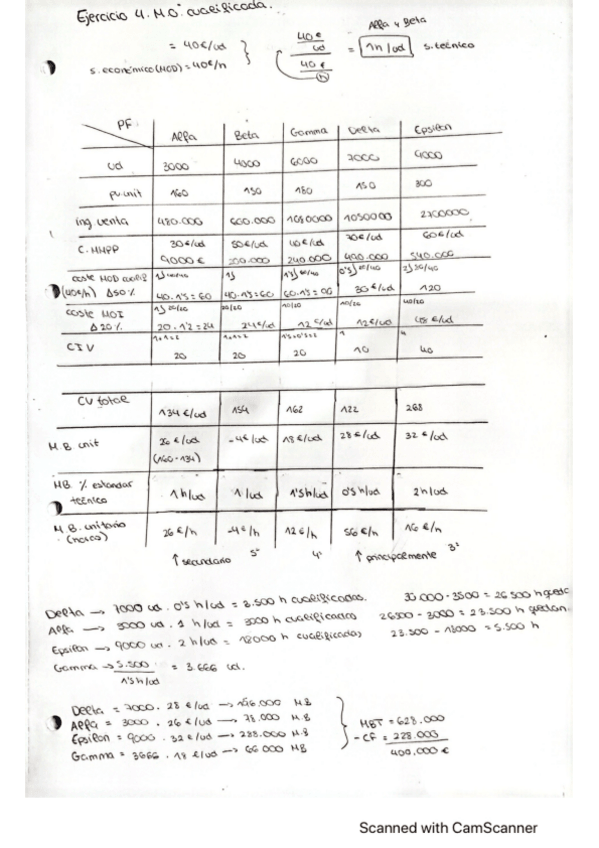 Ejercicio 4. M.O. cualificada.
= 40€/ud
s. económico (MOD) = 40€/h
40€
ud
40€
h
= 1h/ud
Alfa y Beta
s. técnico
PF Alfa Beta Gamma Delta Epsilon
ud 3000 4000 6000 7000 9000
pv.unit 160 150 180 150 300
ing. venta 480.000 600.000 1080000 1050000 2700000
C. MMPP 30€/ud 50€/ud 40€/ud 70€/ud 60€/ud
9000€ 200.000 240.000 490.000 540.000
coste MOD cualif (40€/h) Δ50% 40·1'5=60 40·1'5=60 60·1'5=90 30€/ud 120
coste MOI Δ20% 20·1'2=24 24€/ud 12€/ud 12€/ud 48€/ud
CIV 20 20 20 10 40
CV total 134€/ud 154 162 122 268
M.B unit 26€/ud -4€/ud 18€/ud 28€/ud 32€/ud
(160-134)
MB % estandar técnico 1h/ud 1/ud 1'5h/ud 0'5h/ud 2h/ud
M.B. unitario (horas) 26€/h -4€/h 12€/h 56€/h 16€/h
↑ secundario 5º 4º ↑ principalmente 3º
Delta → 7000 ud · 0's h/ud = 3.500 h cualificadas. 30.000-3500 = 26500 h quedan
Alfa → 3000 ud · 1 h/ud = 3000 h cualificadas 26500-3000 = 23.500 h quedan.
Epsilon → 9000 ud · 2 h/ud = 18000 h cualificadas 23.500-18000 = 5.500 h
Gamma → 5.500
1's h/ud
= 3.666 ud.
Delta = 7000 · 28€/ud → 196.000 M.B
Alfa = 3000 · 26€/ud → 78.000 M.B
Epsilon = 9000 · 32€/ud → 288.000 M.B
Gamma = 3666 · 18€/ud → 66.000 MB
MBT = 628.000
- CF = 228.000
400.000€
Scanned with CamScanner